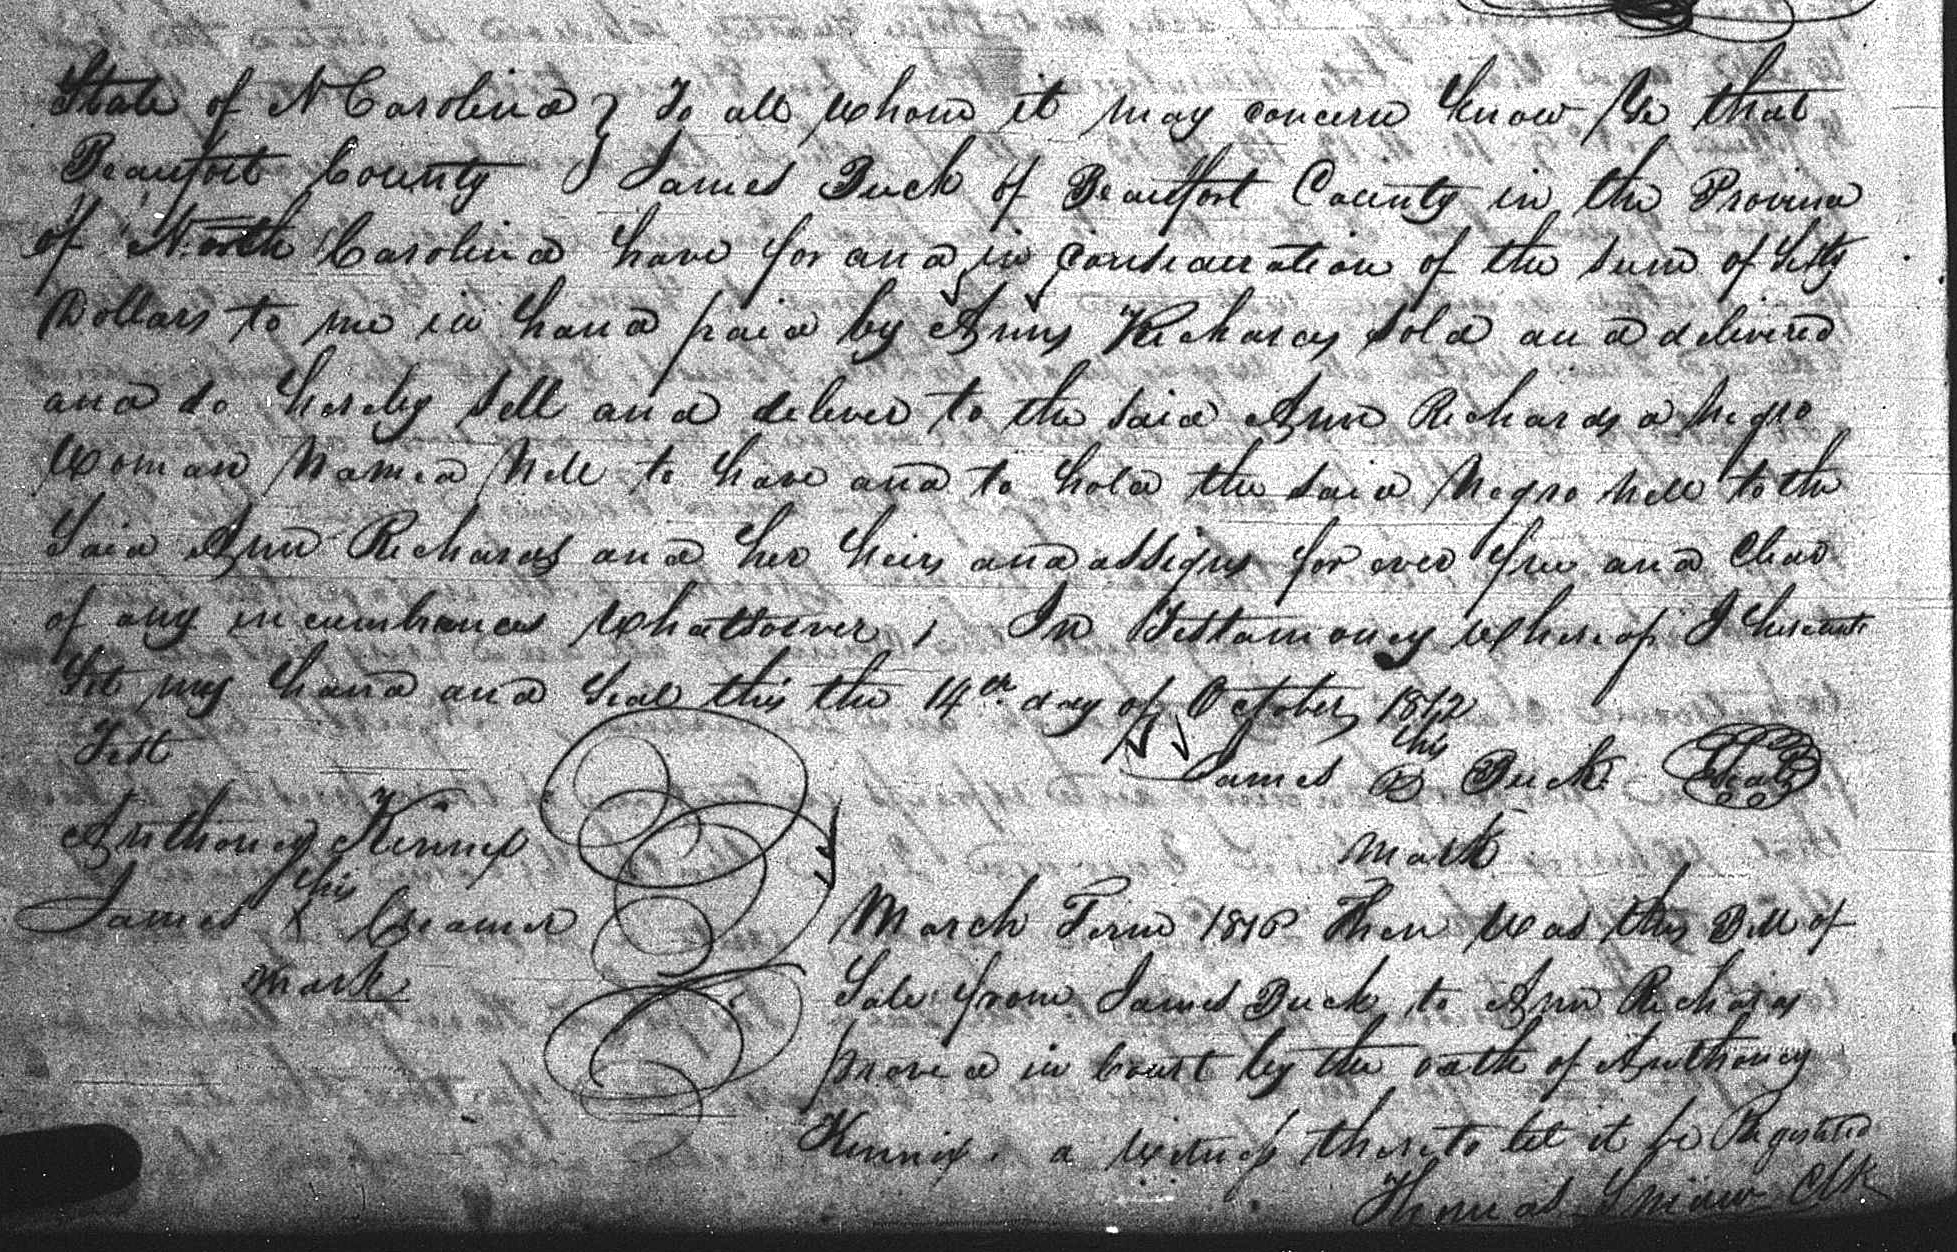 State of N Carolina } To all whom it may concern know Ye that
Beaufort County } I James Buck of Beaufort County in the Province
of North Carolina have for and in consideration of the sum of
Dollars to me in hand paid by Anny Richards sold and delivered
and do hereby sell and deliver to the said Ann Richards a Negro
Woman Named Nell to have and to hold the said Negro Nell to the
Said Ann Richards and her heirs and assigns for ever free and Clear
of any incumbrances whatsoever, In Testamoney whereof I hereunto
Set my hand and Seal this the 14th day of October 1812
Test
his
James B Buck Seal
mark
Anthoney Kennix
his
James X Creamer
mark
March Term 1816 Then was this Bill of
Sale from James Buck to Ann Richards
proved in Court by the oath of Anthoney
Kennix a witness thereto let it be Registered
Thomas Clk